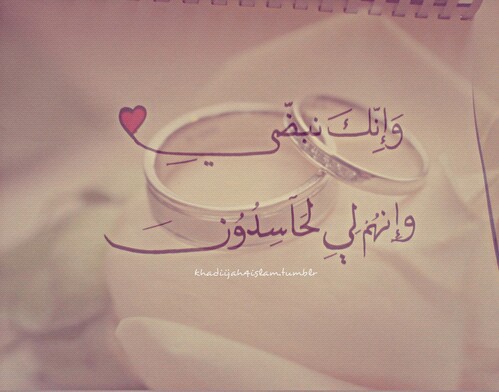 وَإِنِّكَ نبضّيِ
وإنهُم لِي لَحَآسِدُونَ
khadijah4islam.tumblr